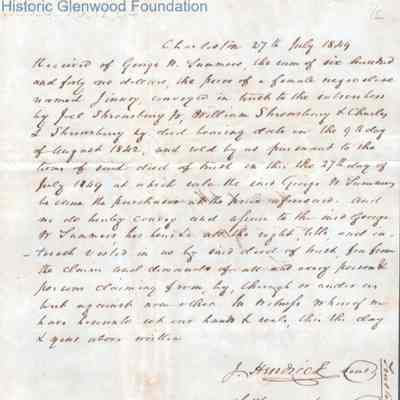 Historic Glenwood Foundation
Charleston 27th July 1849
Received of George W. Summers, the sum of six hundred
and forty no dollars, the price of a female negro slave
named Jinny, conveyed in trust to the subscribers
by Joel Shrewsbury Jr, William Shrewsbury & Charles
L Shrewsbury by deed bearing date on the 9th day
of August 1842, and sold by us pursuant to the
terms of said deed of trust on this the 27th day of
July 1849 at which sale the said George W Summers
became the purchaser at the price aforesaid. And
we do hereby convey and assign to the said George
W Summers his heirs &c all the right, title and in-
terest vested in us by said deed of trust, free from
the claims and demands of all and every person &
persons claiming from, by, through or under us
but against none other. In Witness Whereof we
have hereunto set our hands & seals, this the day
& year above written
J. Hendrick seal